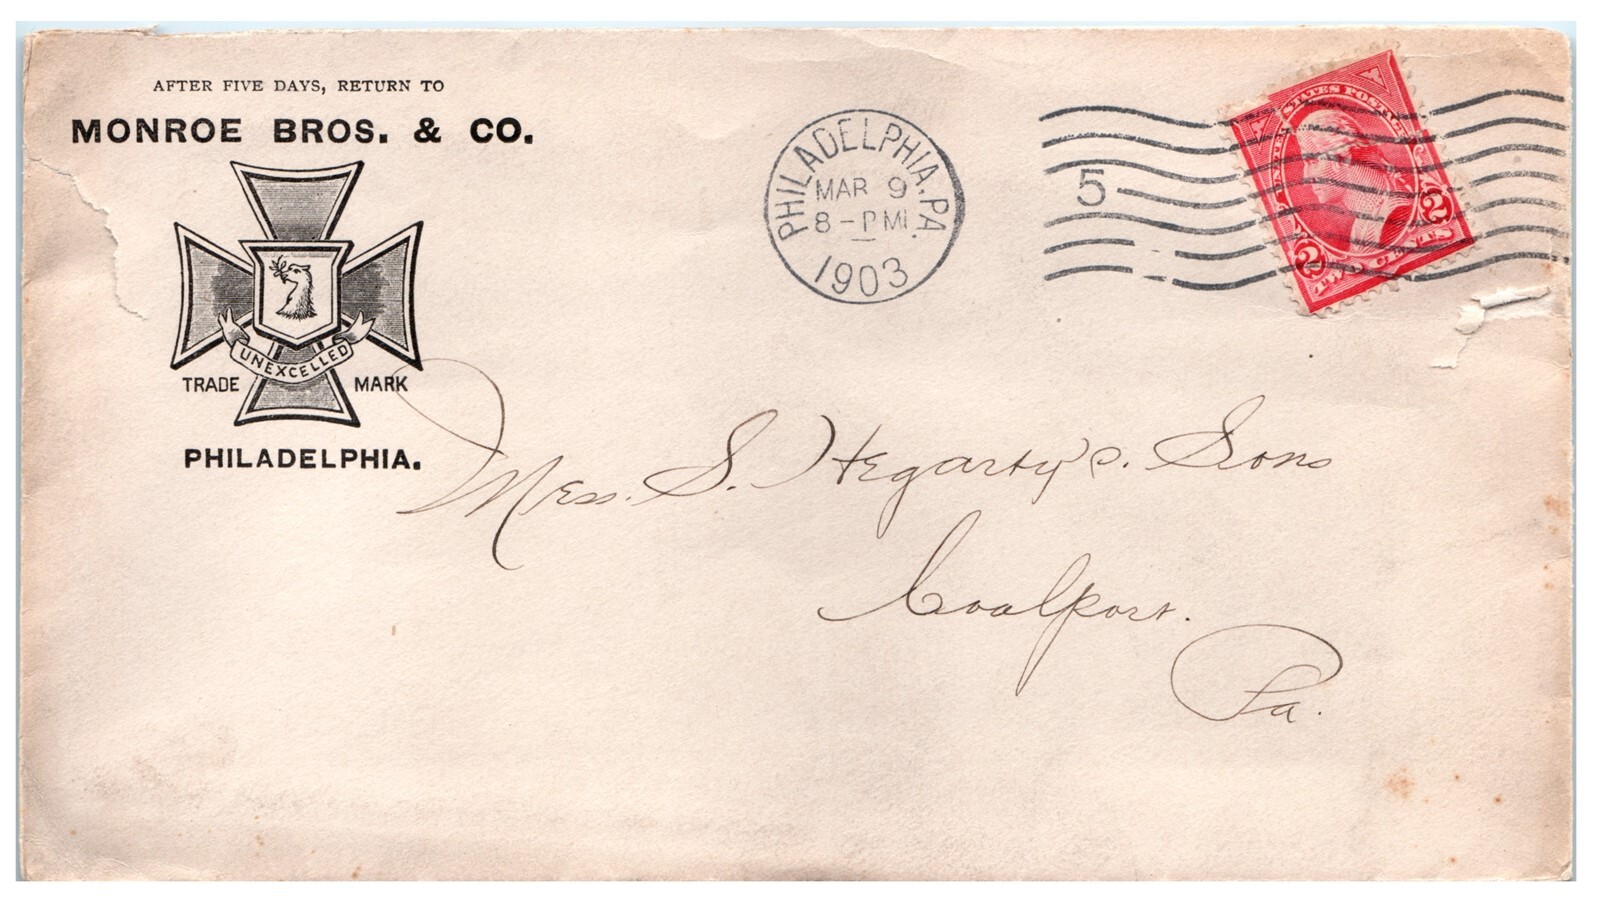 AFTER FIVE DAYS, RETURN TO
MONROE BROS. & CO.
UNEXCELLED
TRADE MARK
PHILADELPHIA.
PHILADELPHIA, PA.
MAR 9
8-PM
1903
5
UNITED STATES POSTAGE
2 2
TWO CENTS
Mess. S. Hegarty's. Sons
Coalport.
Pa.